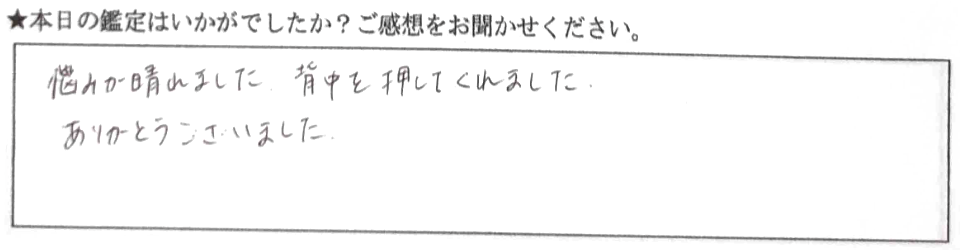 ★本日の鑑定はいかがでしたか？ご感想をお聞かせください。
悩みが晴れました. 背中を押してくれました.
ありがとうございました.